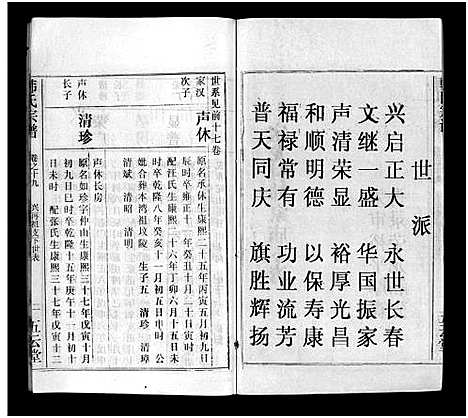 世派
兴启正大 永世长春
文继一盛 华国振家
声清荣显 裕厚光昌
和顺明德 以保寿康
福禄常有 功业流芳
普天同庆 旗胜辉扬
世系见前十七卷
家汉
次子
声休
原名承休生康熙二十五年丙寅五月初九日
辰时卒乾隆十年癸丑十月二十日寅时
配汪氏生康熙二十六年丁卯六月十五日未
时卒乾隆八年癸亥十一月初五日申时 公
妣合葬本湾祖坟陵 生子五 清珍 清璋
清斌 清昭 清明
声休
长子
清珍
声休长房
原名如珍字仲山生康熙四十七年戊寅十月
初九日巳时卒乾隆十五年庚午十一月初十
日未时 配张氏生康熙三十七年戊寅十二
韩氏宗谱
卷之十九
兴丙祖支下世表
一
五云堂